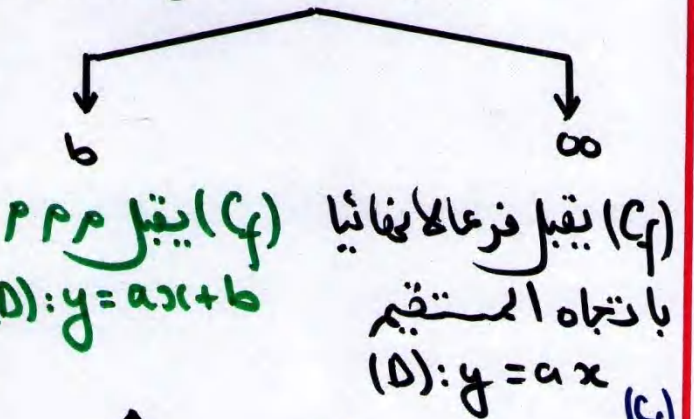 ∞
b
(Cf) يقبل فرعا لانهائيا
باتجاه المستقيم
(D): y = ax
(Cf) يقبل م م م
(D): y = ax + b
(C